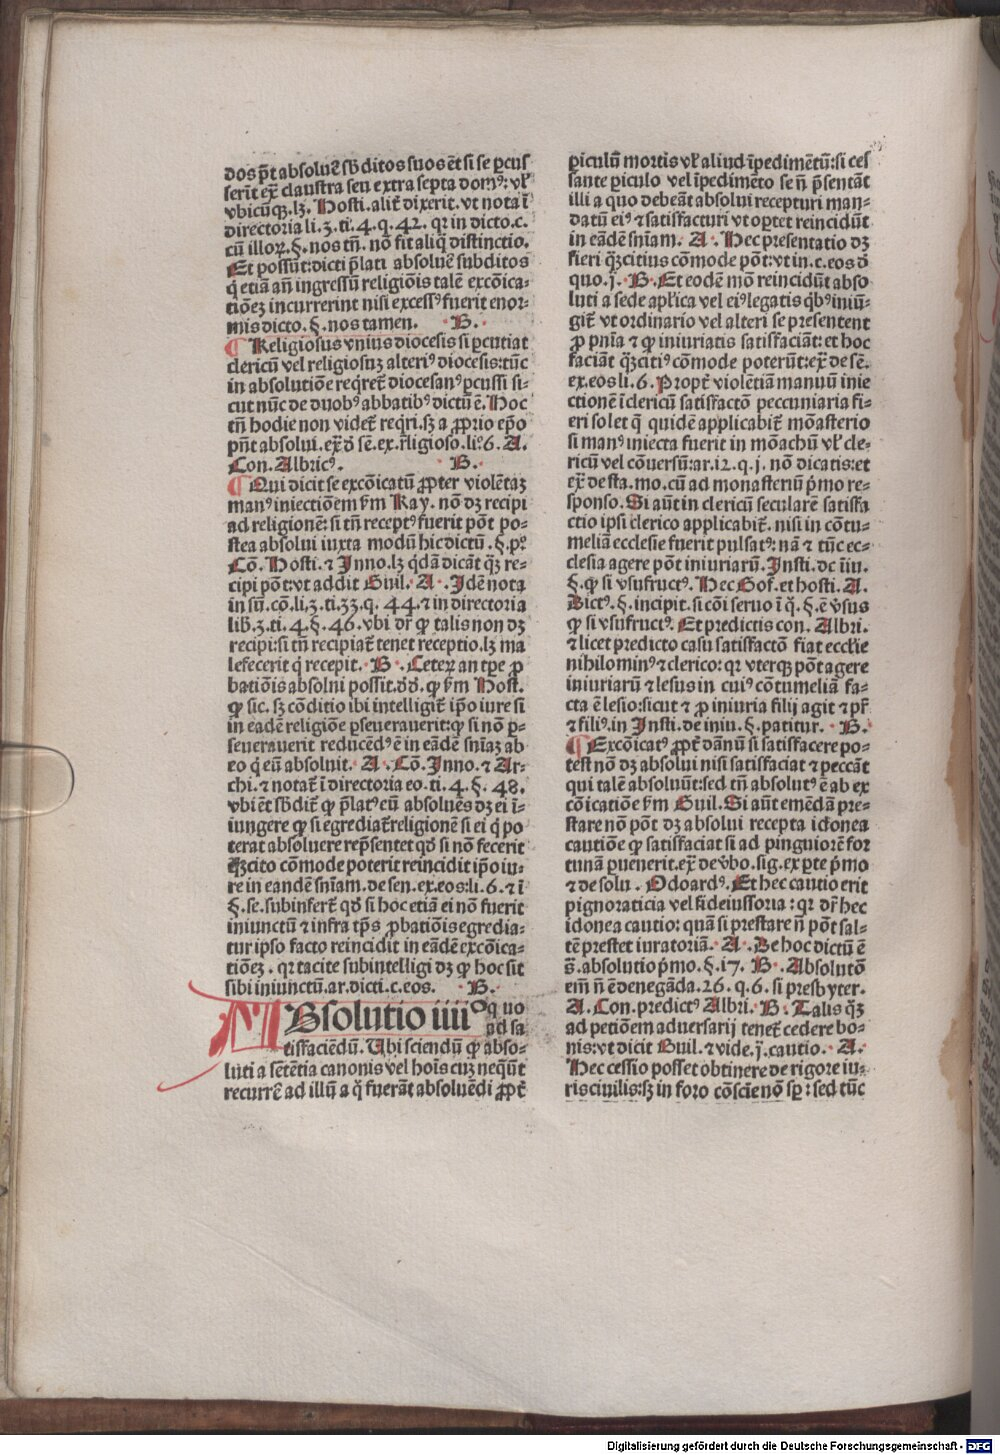 dos p̄t absoluē sƀditos suos ēt si se ꝑcus
serīt ex̄ claustra seu extra septa domꝰ: vƚ
vbicūqꝫ. lꝫ. Hosti. alit̄ dixerit. vt nota ī
directoria li. 3. ti. 4. q. 42. qꝛ in dicto. c.
cū illoꝝ. §. nos tn̄. nō fit aliq̄ distinctio.
Et possūt: dicti p̄lati absoluē subditos
q̇ etiā an̄ ingressū religiōis talē excōica⸗
tiōeꝫ incurrerint nisi excessꝰ fuerit enor⸗
mis dicto. §. nos tamen. B.
¶ Religiosus vnius diocesis si ꝑcutiat
clericū vel religiosuꝫ alteriꝰ diocesis: tūc
in absolutiōe reqͥret̄ diocesanꝰ ꝑcussi si⸗
cut nūc de duobꝰ abbatibꝰ dictū ē. Hoc
tn̄ hodie non videt̄ reqͥri. sꝫ a ꝓprio ep̄o
pn̄t absolui. ex̄ đ sē. ex. r̄ligioso. li. 6. A.
Con. Albricꝰ. B.
¶ Qui dicit se excōicatū ꝓpter violētaꝫ
manꝰ iniectiōem ẜm Ray. nō dꝫ recipi
ad religionē: si tn̄ receptꝰ fuerit pōt po⸗
stea absolui iuxta modū hic dictū. §. pͦ.
Cō. Hosti. ⁊ Inno. lꝫ q̇dā dicāt qꝫ re⸗
cipi pōt: vt addit Guil. A. Idē nota
in sū. cō. li. 3. ti. 33. q. 44. ⁊ in directoria
lib̄. 3. ti. 4. §. 46. vbi dr̄ ꝙ talis non dꝫ
recipi: si tn̄ recipiat̄ tenet receptio. lꝫ ma
lefecerit q̇ recepit. B. Ceteꝝ an tꝑe ꝓ
batiōis absolui possit. đđ. ꝙ ẜm Host.
ꝙ sic. sꝫ cōditio ibi intelligit̄ ip̄o iure si
in eadē religiōe ꝑseuerauerit: ꝙ si nō ꝑ⸗
seuerauerit reducēdꝰ ē in eādē sn̄iaꝫ ab
eo q̇ eū absoluit. A. Cō. Inno. ⁊ Ar⸗
chi. ⁊ notat̄ ī directoria eo. ti. 4. §. 48.
vbi ēt sƀdit̄ ꝙ p̄latꝰ eū absoluēs dꝫ ei ī⸗
iungere ꝙ si egrediat̄ religionē si ei q̇ po
terat absoluere rep̄sentet qđ si nō fecerit
qꝫcito cōmode poterit reincidit ip̄o iu⸗
re in eandē sn̄iam. de sen. ex. eos: li. 6. ⁊ ī
§. se. subinfert̄ qđ si hoc etiā ei nō fuerit
iniunctū ⁊ infra tp̄s ꝓbatiōis egredia⸗
tur ipso facto reincidit in eādē excōica⸗
tiōeꝫ. qꝛ tacite subintelligi dꝫ ꝙ hoc sit
sibi iniunctū. ar. dicti. c. eos. B.
ABsolutio iiiiͦ q̇ quo
ad sa
tisfaciēdū. Ubi sciendū ꝙ abso⸗
luti a sētētia canonis vel hoīs cuꝫ neq̄ūt
recurrē ad illū a q̄ fuerāt absoluēdi ꝓpt̄
ꝑiculū mortis vƚ aliud īpedimētū: si ces
sante ꝑiculo vel īpedimēto se n̄ p̄sentāt
illi a quo debeāt absolui recepturi man⸗
datū eiꝰ ⁊ satisfacturi vt oꝑtet reincidūt
in eādē sn̄iam. A. Hec presentatio dꝫ
fieri qꝫcitius cōmode pōt: vt in. c. eos đ
quo. j. B. Et eodē mō reincidūt abso
luti a sede apƚica vel eiꝰ legatis qͥbꝰ iniū⸗
git̄ vt ordinario vel alteri se presentent
ꝓ pn̄ia ⁊ ꝙ iniuriatis satisfaciāt: et hoc
faciāt qꝫcitiꝰ cōmode poterūt: ex̄ de sē.
ex. eos li. 6. Propt̄ violētiā manuū inie
ctionē ī clericū satisfactō peccuniaria fi⸗
eri solet q̄ quidē applicabit̄ mōasterio
si manꝰ iniecta fuerit in mōachū vƚ cle⸗
ricū vel cōuersū: ar. 12. q. j. nō dicatis: et
ex̄ de sta. mo. cū ad monasteriū p̄mo re⸗
sponso. Si aūt in clericū secularē satisfa
ctio ipsi clerico applicabit̄. nisi in cōtu⸗
meliā ecclesie fuerit pulsatꝰ: nā ⁊ tūc ec⸗
clesia agere pōt iniuriarū. Insti. dc īiu.
§. ꝙ si vsufructꝰ. Hec Gof. et hosti. A.
Dictꝰ. §. incipit. si cōi seruo ī q̄. §. ē v̄sus
ꝙ si vsufructꝰ. Et predictis con. Albri.
⁊ licet predicto casu satisfactō fiat eccƚie
nihilominꝰ ⁊ clerico: qꝛ vterqꝫ pōt agere
iniuriarū ⁊ lesus in cuiꝰ cōtumeliā fa⸗
cta ē lesio: sicut ⁊ ꝓ iniuria filij agit ⁊ pr̄
⁊ filiꝰ. in Insti. de iniu. §. patitur. B.
¶ Excōicatꝰ ꝓpt̄ dānū si satisfacere po⸗
test nō dꝫ absolui nisi satisfaciat ⁊ peccāt
qui talē absoluūt: sed tn̄ absolutꝰ ē ab ex
cōicatiōe ẜm Guil. Si aūt emēdā pre⸗
stare nō pōt dꝫ absolui recepta idonea
cautiōe ꝙ satisfaciat si ad pinguiorē for
tunā ꝑuenerit. ex̄ de v̄bo. sig. ex ꝑte p̄mo
⁊ de solu. Odoardꝰ. Et hec cautio erit
pignoraticia vel fideiussoria: qꝛ dr̄ hec
idonea cautio: quā si prestare n̄ pōt sal⸗
tē prestet iuratoriā. A. De hoc dictū ē
s̄. absolutio p̄mo. §. 17. B. Absolutō
em̄ n̄ ē denegāda. 26. q. 6. si presbyter.
A. Con. predictꝰ Albri. B. Talis qꝫ
ad petiōem aduersarij tenet̄ cedere bo⸗
nis: vt dicit Guil. ⁊ vide. j̄. cautio. A.
Hec cessio posset obtinere de rigore iu⸗
ris ciuilis: sꝫ in foro cōscīe nō sp̄: sed tūc
Digitalisierung gefördert durch die Deutsche Forschungsgemeinschaft - DFG